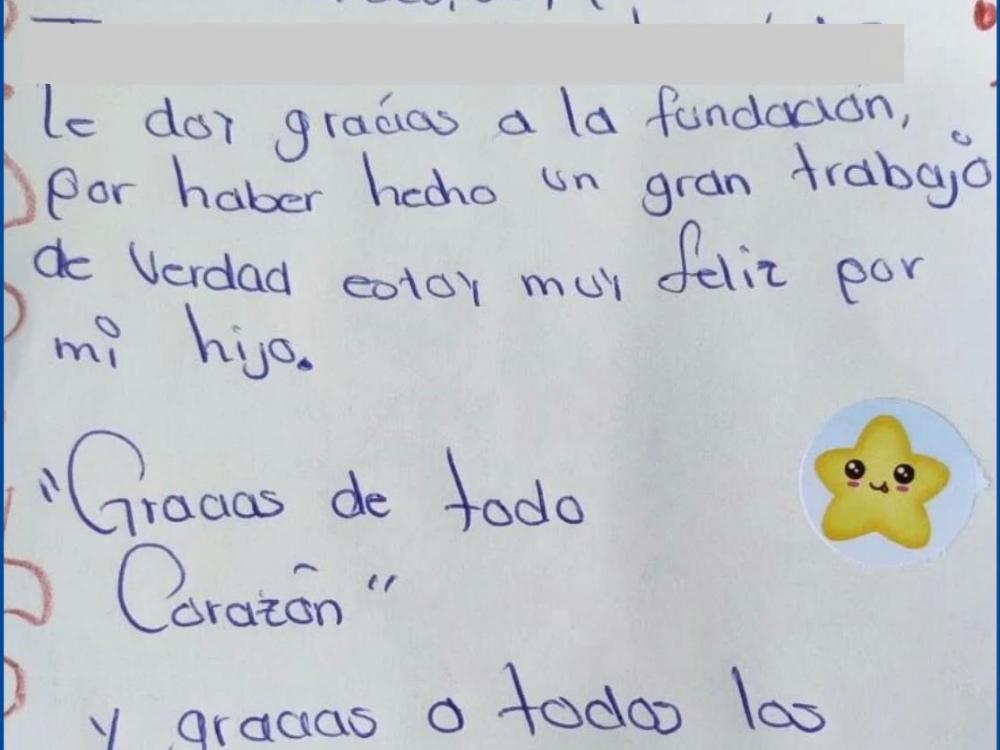 le doy gracias a la fundación,
por haber hecho un gran trabajo
de verdad estoy muy feliz por
mi hijo.
"Gracias de todo
Corazón"
y gracias a todos los